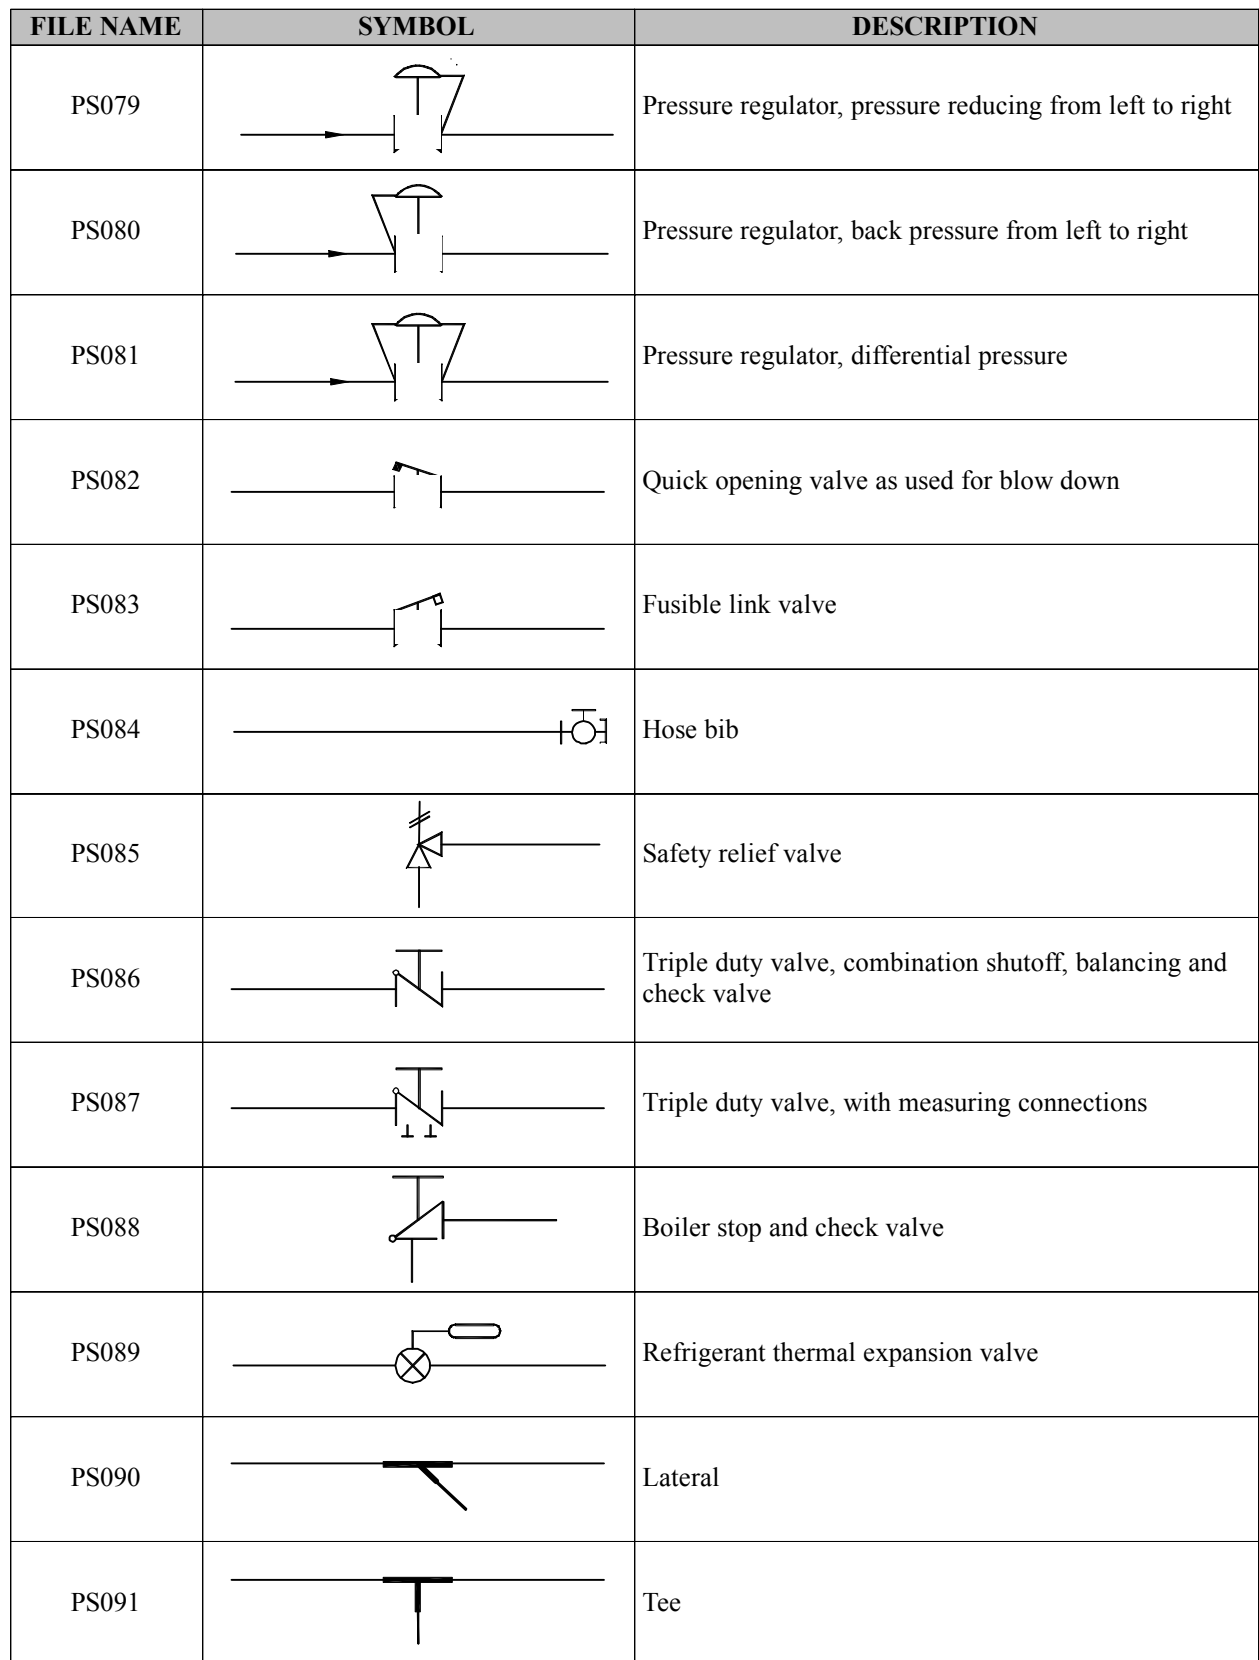 FILE NAME SYMBOL DESCRIPTION
PS079 Pressure regulator, pressure reducing from left to right
PS080 Pressure regulator, back pressure from left to right
PS081 Pressure regulator, differential pressure
PS082 Quick opening valve as used for blow down
PS083 Fusible link valve
PS084 Hose bib
PS085 Safety relief valve
PS086 Triple duty valve, combination shutoff, balancing and
check valve
PS087 Triple duty valve, with measuring connections
PS088 Boiler stop and check valve
PS089 Refrigerant thermal expansion valve
PS090 Lateral
PS091 Tee